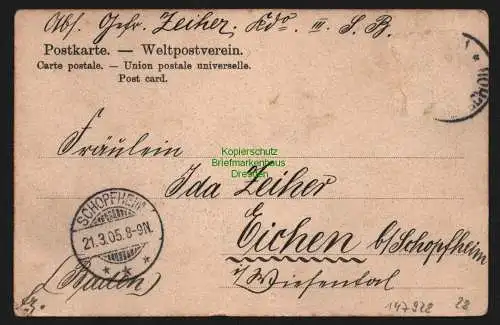 Abs. Gefr. Zeiher, Kdo. III. S. B.
Postkarte. — Weltpostverein.
Carte postale. — Union postale universelle.
Post card.
Fräulein
Kopierschutz
Briefmarkenhaus
Dresden
Ida Zeiher
SCHOPFHEIM
21.3.05.8-9N.
Eichen b/Schopfheim
i/Wiesental
(Baden)
147928 28